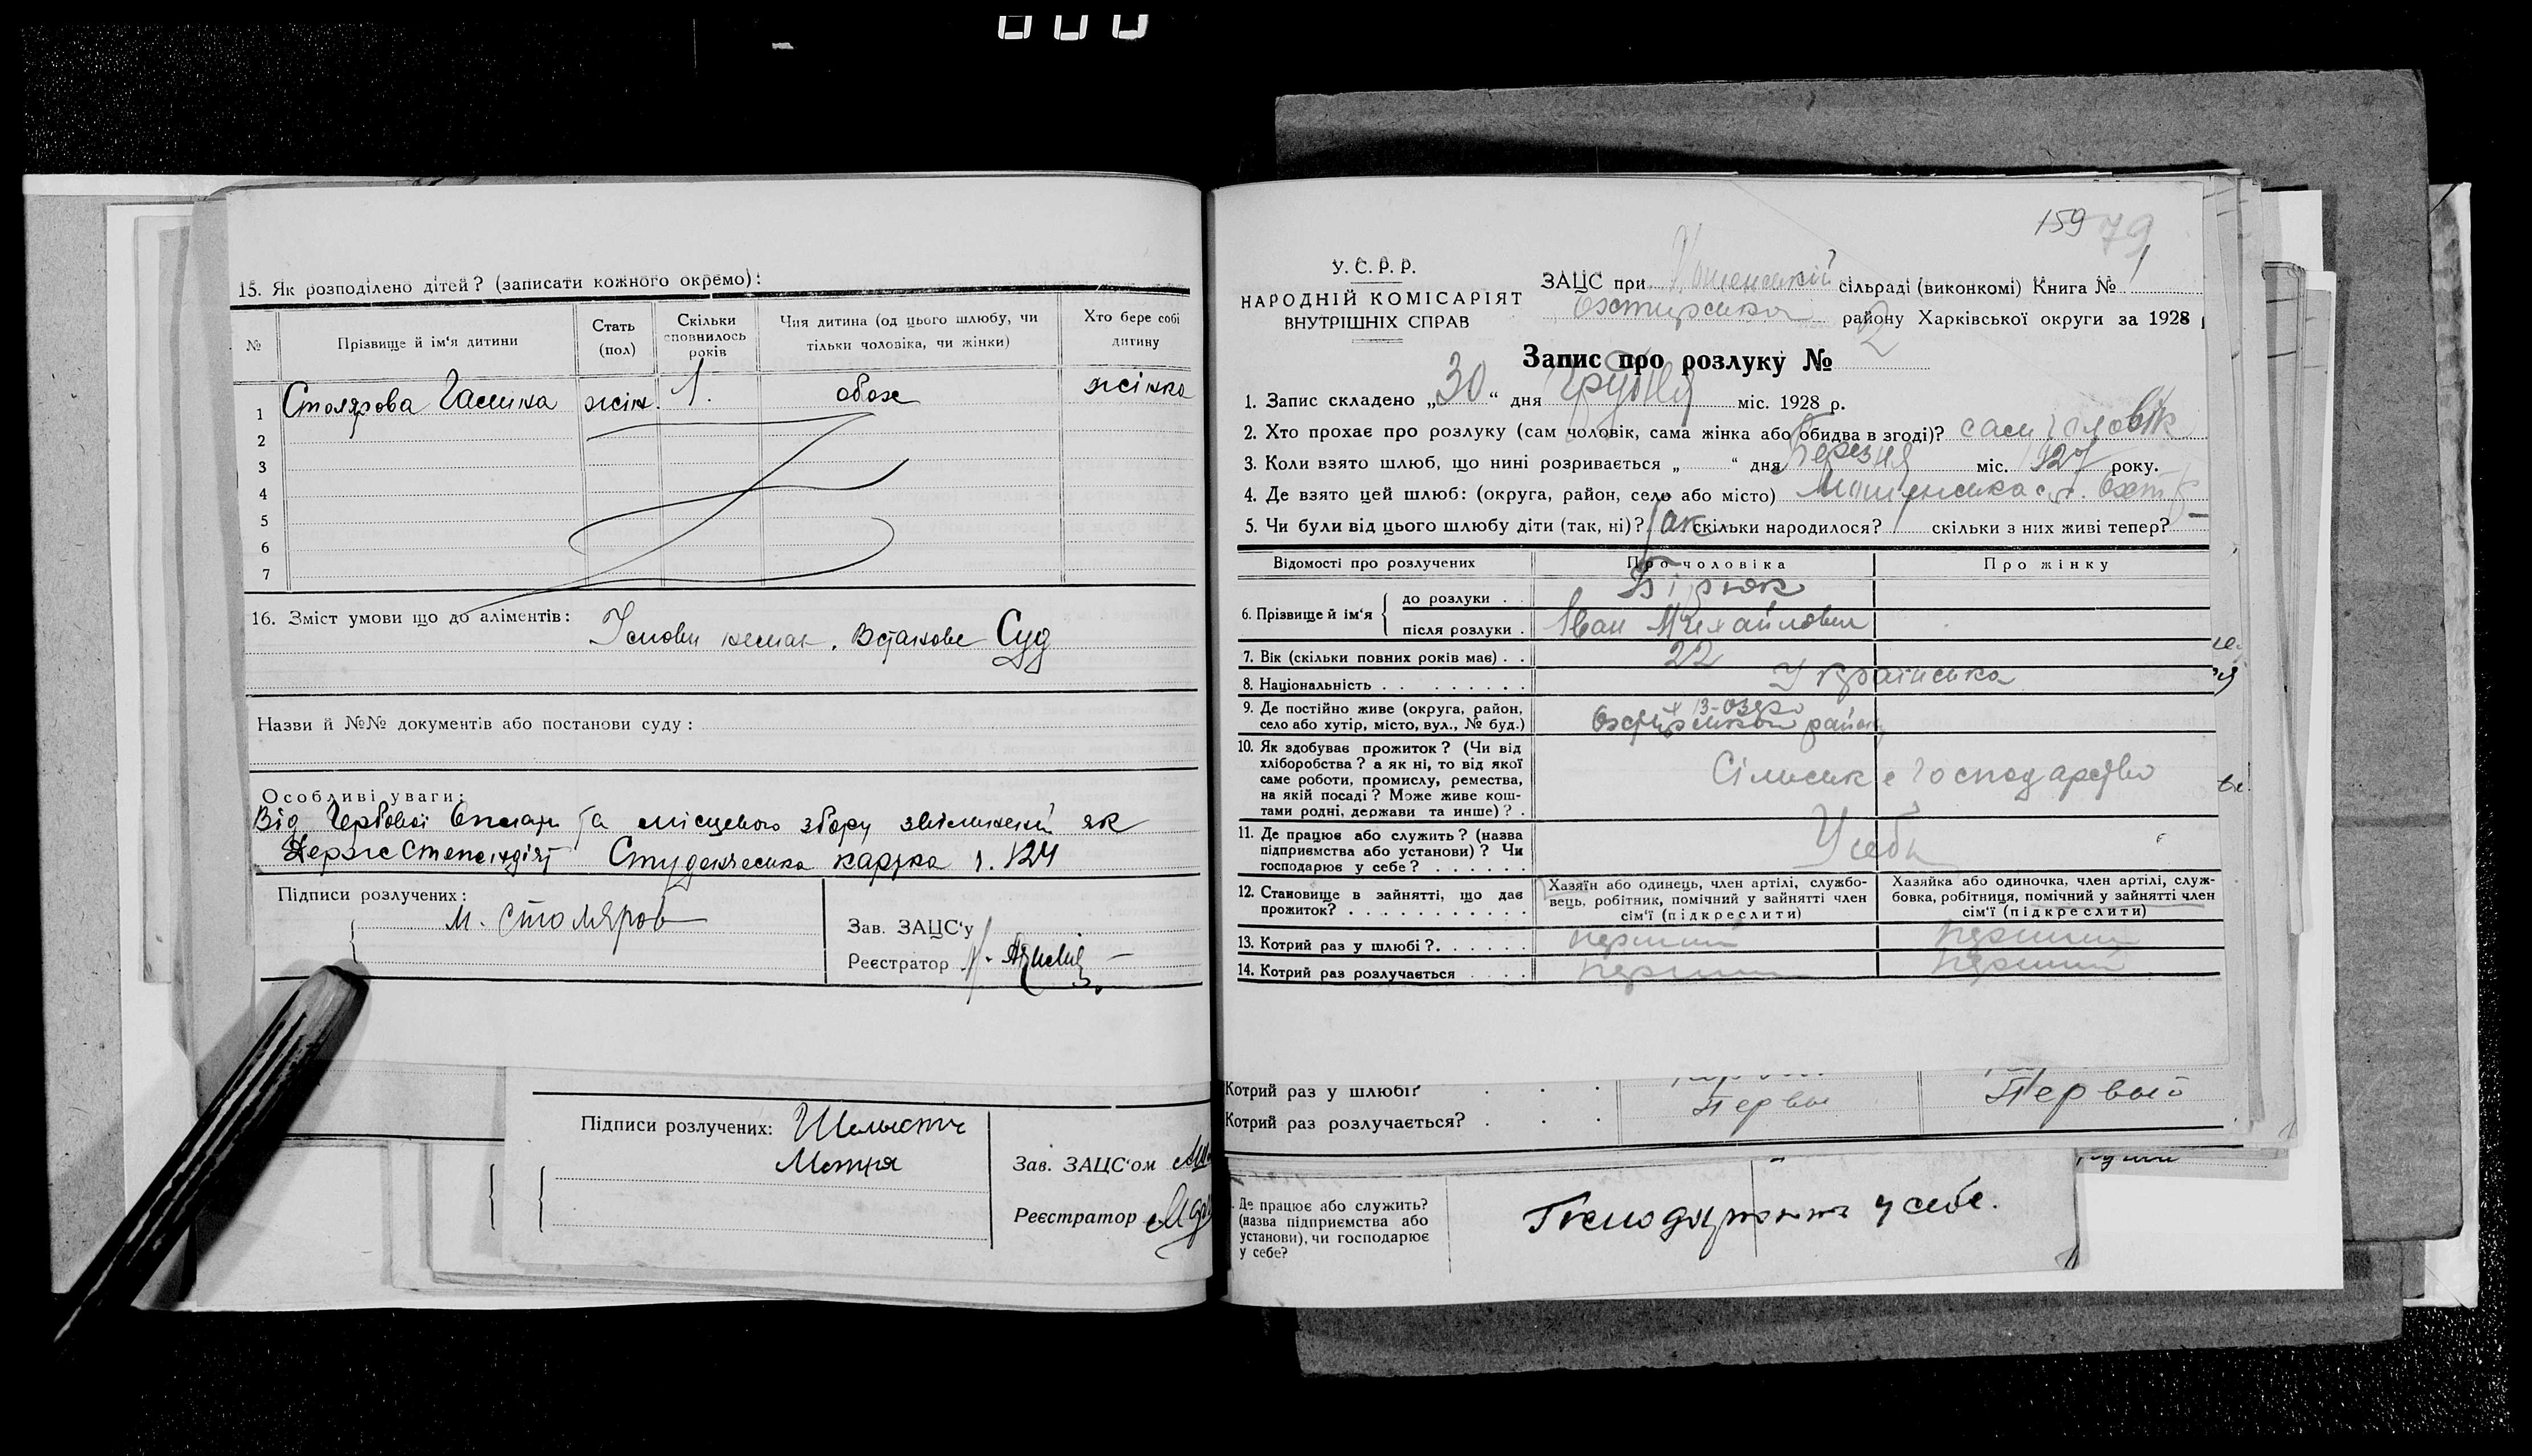 15. Як розподілено дітей? (записати кожного окремо):
№ Прізвище й ім'я дитини Стать (пол) Скільки сповнилось років Чия дитина (од цього шлюбу, чи тільки чоловіка, чи жінки) Хто бере собі дитину
1 Столярова Галина жін. 1. обох жінка
2
3
4
5
6
7
16. Зміст умови що до аліментів: Умови немає. Встанове Суд
Назви й №№ документів або постанови суду:
Особливі уваги:
Від Гербової Оплати та місцевого збору звільнений як
Держстепендіят Студенчеська картка ч. 124
Підписи розлучених:
М. Столяров
Зав. ЗАЦС'у
Реєстратор
Підписи розлучених: Шелыст
Мотря
Зав. ЗАЦС'ом
Реєстратор
159 79
У. С. Р. Р.
НАРОДНІЙ КОМІСАРІЯТ
ВНУТРІШНІХ СПРАВ
ЗАЦС при сільраді (виконкомі) Книга № 1
Охтирська району Харківської округи за 1928
Запис про розлуку № 2
1. Запис складено „30“ дня Грудня міс. 1928 р.
2. Хто прохає про розлуку (сам чоловік, сама жінка або обидва в згоді)? сам чоловік
3. Коли взято шлюб, що нині розривається „ “ дня Березня міс. 1927 року.
4. Де взято цей шлюб: (округа, район, село або місто)
5. Чи були від цього шлюбу діти (так, ні)? Так скільки народилося? 1 скільки з них живі тепер? —
Відомості про розлучених Про чоловіка Про жінку
6. Прізвище й ім'я { до розлуки . . Бірюк
після розлуки . Іван Михайлович
7. Вік (скільки повних років має) . . 22
8. Національність . . . . . . . . . Українська
9. Де постійно живе (округа, район, село або хутір, місто, вул., № буд.) Охтирського району
10. Як здобуває прожиток? (Чи від хліборобства? а як ні, то від якої саме роботи, промислу, ремества, на якій посаді? Може живе коштами родні, держави та инше)? . Сільське господарство
11. Де працює або служить? (назва підприємства або установи)? Чи господарює у себе? . . . . . . У себе
12. Становище в зайнятті, що дає прожиток? . . . . . . . . . . . Хазяїн або одинець, член артілі, службовець, робітник, помічний у зайнятті член сім'ї (підкреслити) Хазяйка або одиночка, член артілі, службовка, робітниця, помічний у зайнятті член сім'ї (підкреслити)
13. Котрий раз у шлюбі?. . . . . . перший перший
14. Котрий раз розлучається . . . . перший перший
Котрий раз у шлюбі? . . .
Котрий раз розлучається? . . . Первы Первый
Де працює або служить? (назва підприємства або установи), чи господарює у себе? у себе.